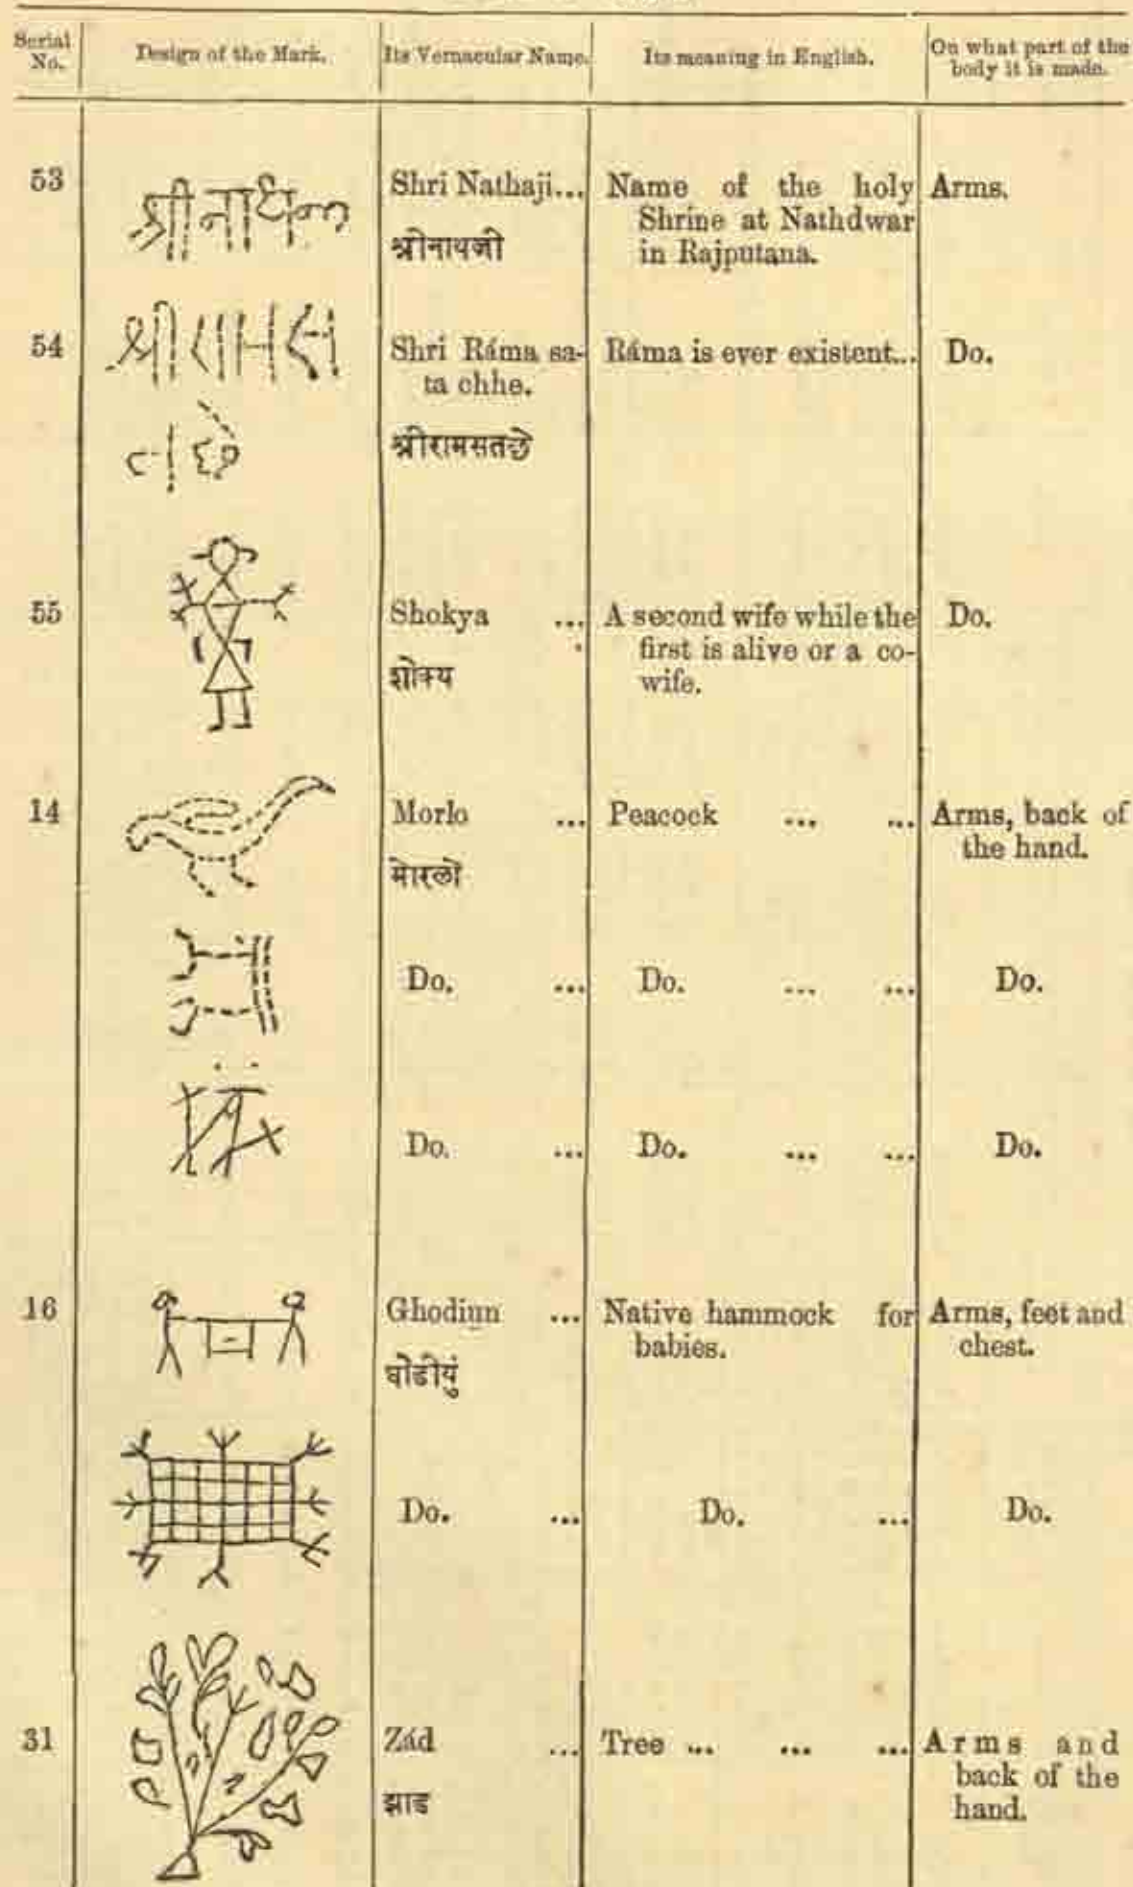 Serial No.
Design of the Mark.
Its Vernacular Name.
Its meaning in English.
On what part of the body it is made.
53
श्री नाथजी
Shri Nathaji...
श्रीनाथजी
Name of the holy
Shrine at Nathdwar
in Rajputana.
Arms.
54
Shri Ráma sa-
ta chhe.
श्रीरामसतछे
Ráma is ever existent...
Do.
55
Shokya ...
शोक्य
A second wife while the
first is alive or a co-
wife.
Do.
14
Morlo ...
मोरलो
Peacock ... ...
Arms, back of
the hand.
Do. ...
Do. ... ...
Do.
Do. ...
Do. ... ...
Do.
16
Ghodiun ...
घोडीयुं
Native hammock for
babies.
Arms, feet and
chest.
Do. ...
Do. ...
Do.
31
Zád ...
झाड
Tree ... ... ...
Arms and
back of the
hand.